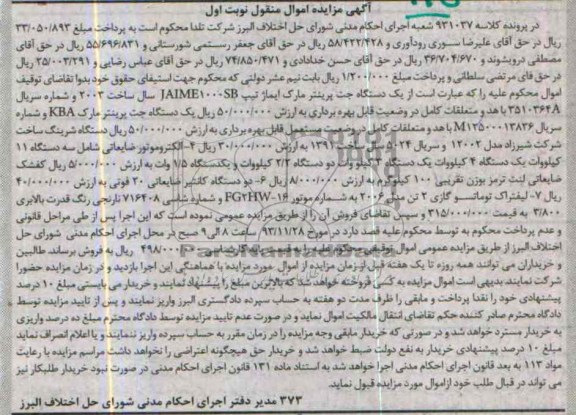 آگهی مزایده اموال منقول نوبت اول
در پرونده کلاسه ۹۳۱۰۳۷ شعبه اجرای احکام مدنی شورای حل اختلاف البرز شرکت تلدا محکوم است به پرداخت مبلغ ۳۳/۰۵۰/۸۹۳
ریال در حق آقای علیرضا سبوری رودآوری و ۵۸/۴۲۲/۴۲۸ ریال در حق آقای جعفر رستمی شورستانی و ۵۵/۶۹۶/۸۳۱ ریال در حق آقای
مصطفی درویشوند و ۳۶/۷۰۴/۶۷۰ ریال در حق آقای حسن خدادادی و ۷۴/۸۵۰/۴۷۱ ریال در حق آقای عباس رضایی و ۲۵/۰۰۳/۲۹۱ ریال
در حق آقای مرتضی سلطانی و پرداخت مبلغ ۱/۲۰۰/۰۰۰ ریال بابت نیم عشر دولتی که محکوم جهت استیفای حقوق خود بدوا تقاضای توقیف
اموال محکوم علیه را که عبارت است از یک دستگاه جت پرینتر مارک ایماژ تیپ JAIME1000-SB سال ساخت ۲۰۰۳ و شماره سریال
۳۵۱۰۳۶۴A با هد و متعلقات کامل در وضعیت قابل بهره برداری به ارزش ۵۰/۰۰۰/۰۰۰ ریال یک دستگاه جت پرینتر مارک KBA و شماره
سریال M۱۲۵۰۰۰۱۳۸۳۶ با هد و متعلقات کامل در وضعیت مستعمل قابل بهره برداری به ارزش ۵۰/۰۰۰/۰۰۰ ریال دستگاه شرینگ ساخت
شرکت شیرزاد مدل ۱۲۰۰۲ و سریال ۵۰۲۴ سال ساخت ۱۳۹۱ به ارزش ۳۰/۰۰۰/۰۰۰ ریال ۴-الکتروموتور ضایعاتی شامل سه دستگاه ۱۱
کیلووات یک دستگاه ۴ کیلووات یک دستگاه ۳ کیلووات دو دستگاه ۲/۲ کیلووات و یکدستگاه ۱/۵ وات به ارزش ۵/۰۰۰/۰۰۰ ریال کفشک
ضایعاتی لنت ترمز بوزن تقریبی ۱۰۰ کیلوگرم به ارزش ۸/۰۰۰/۰۰۰ ریال ۶- دو دستگاه کانتینر ضایعاتی ۲۰ فوتی به ارزش ۴۰/۰۰۰/۰۰۰
ریال ۷- لیفتراک توماتسو گازی ۲ تن مدل ۲۰۰۶ به شماره موتور FG۲HW-۱۶ و شماره شاسی ۷۱۶۴۰۸ نارنجی رنگ قدرت بالابری
۳/۸۰۰ به قیمت ۳۱۵/۰۰۰/۰۰۰ و سپس تقاضای فروش آن را از طریق مزایده عمومی نموده است که این اجرا پس از طی مراحل قانونی
و عدم پرداخت محکوم به توسط محکوم علیه قصد دارد در مورخ ۹۳/۱۱/۲۸ ساعت ۸ الی ۹ صبح در محل اجرای احکام مدنی شورای حل
اختلاف البرز از طریق مزایده عمومی اموال توقیفی محکوم علیه را به قیمت پایه کارشناسی ۴۹۸/۰۰۰/۰۰۰ ریال به فروش برساند. طالبین
و خریداران می توانند همه روزه تا یک هفته قبل از زمان مزایده از اموال مورد مزایده با هماهنگی این اجرا بازدید و در زمان مزایده حضورا
شرکت نمایند بدیهی است اموال مزایده به کسی فروخته خواهد شد که بالاترین مبلغ را پیشنهاد نمایند و خریدار می بایستی مبلغ ۱۰ درصد
پیشنهادی خود را نقدا پرداخت و مابقی را ظرف مدت دو هفته به حساب سپرده دادگستری البرز واریز نمایند و پس از تایید مزایده توسط
دادگاه محترم صادر کننده حکم تقاضای انتقال مالکیت اموال نماید و در صورت عدم تایید مزایده توسط دادگاه محترم مبلغ ده درصد واریزی
به خریدار مسترد خواهد شد و در صورتی که خریدار مابقی وجه مزایده را در زمان مقرر به حساب سپرده واریز ننمایند و یا اعلام انصراف نماید
مبلغ ۱۰ درصد پیشنهادی خریدار به نفع دولت ضبط خواهد شد و خریدار حق هیچگونه اعتراضی را نخواهد داشت مراسم مزایده با رعایت
مواد ۱۱۳ به بعد قانون اجرای احکام مدنی اجرا خواهد شد به استناد ماده ۱۳۱ قانون اجرای احکام مدنی در صورت نبود خریدار طلبکار نیز
می تواند در قبال طلب خود از اموال مورد مزایده قبول نماید.
۳۷۳ مدیر دفتر اجرای احکام مدنی شورای حل اختلاف البرز